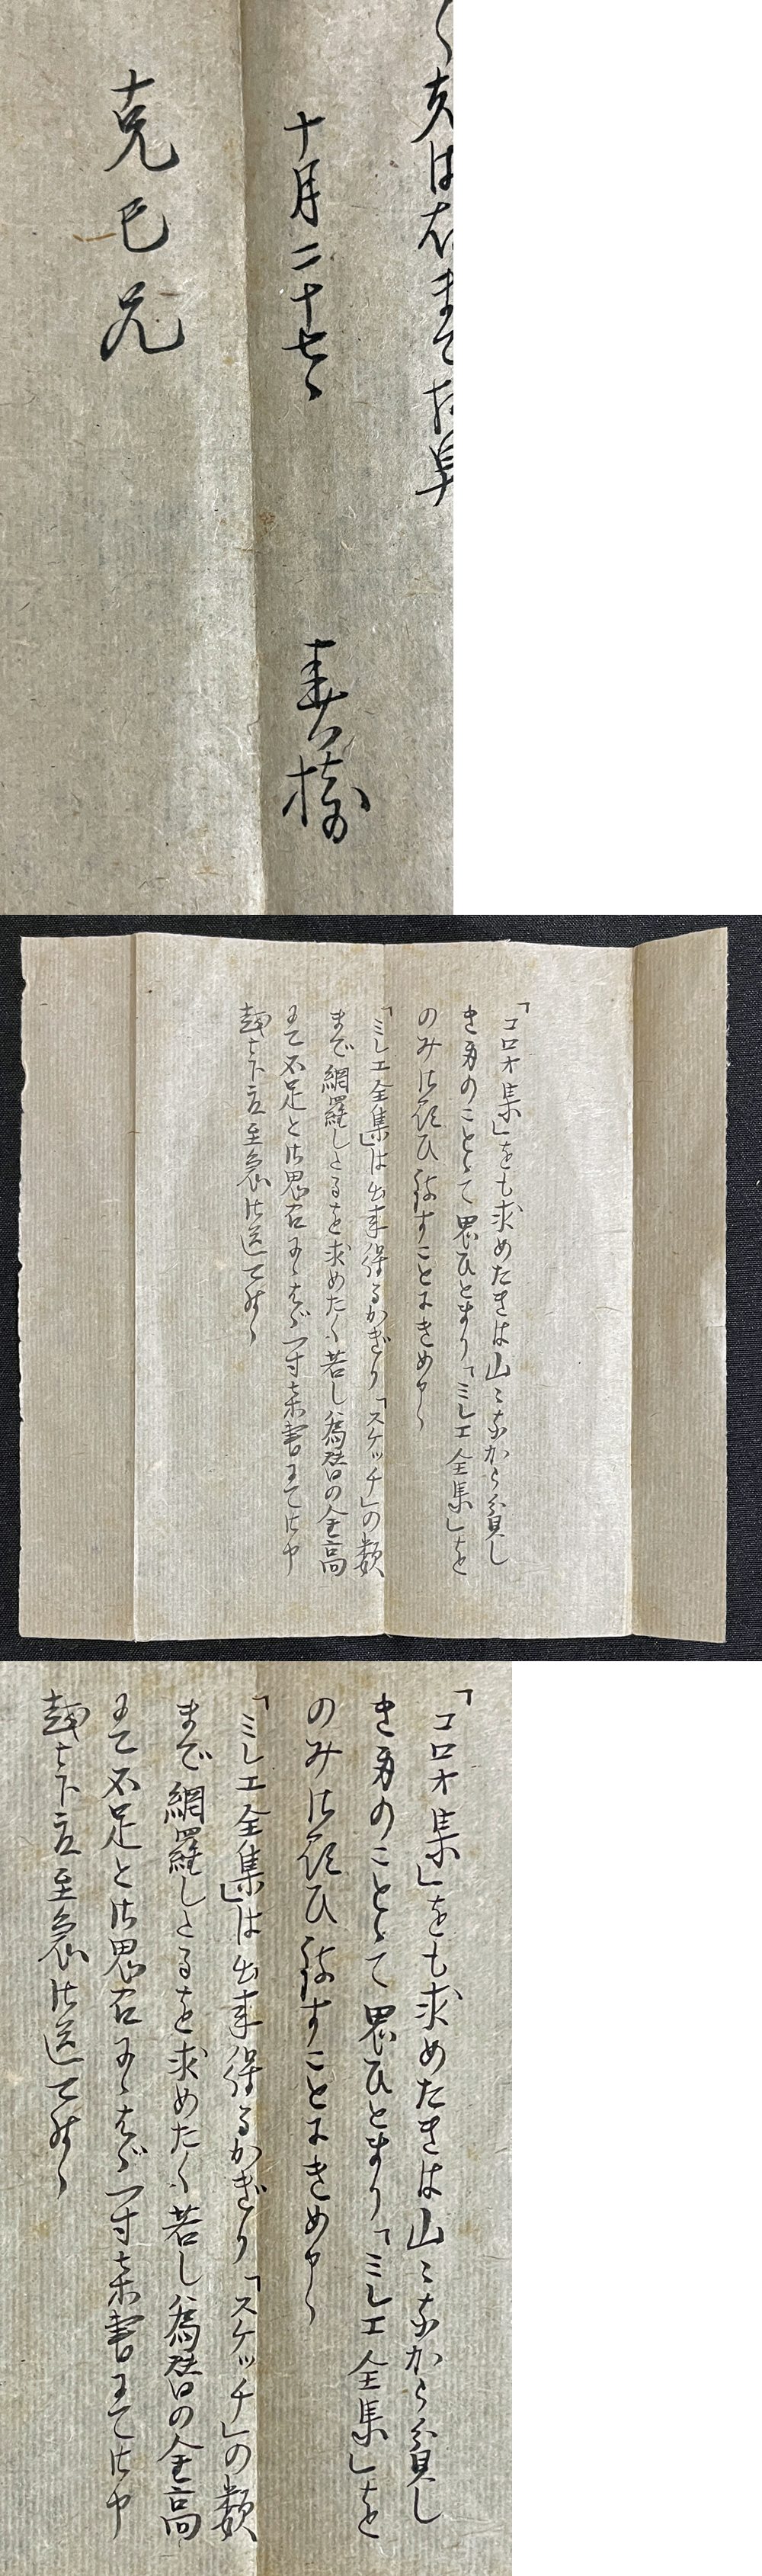 十月二十七日
春樹
克巳兄
「コロオ集」をも求めたきは山々なから貧し
き身のことゝて思ひとまり「ミレエ全集」を
のみ御願ひ致すことにきめ申候
「ミレエ全集」は出来得るかぎり「スケッチ」の数
まで網羅したるを求めたく若し為替の金高
にて不足と御思召候はゞ一寸葉書にて御申
越下度至急御送可申候
「コロオ集」をも求めたきは山々なから貧し
き身のことゝて思ひとまり「ミレエ全集」を
のみ御願ひ致すことにきめ申候
「ミレエ全集」は出来得るかぎり「スケッチ」の数
まで網羅したるを求めたく若し為替の金高
にて不足と御思召候はゞ一寸葉書にて御申
越下度至急御送可申候